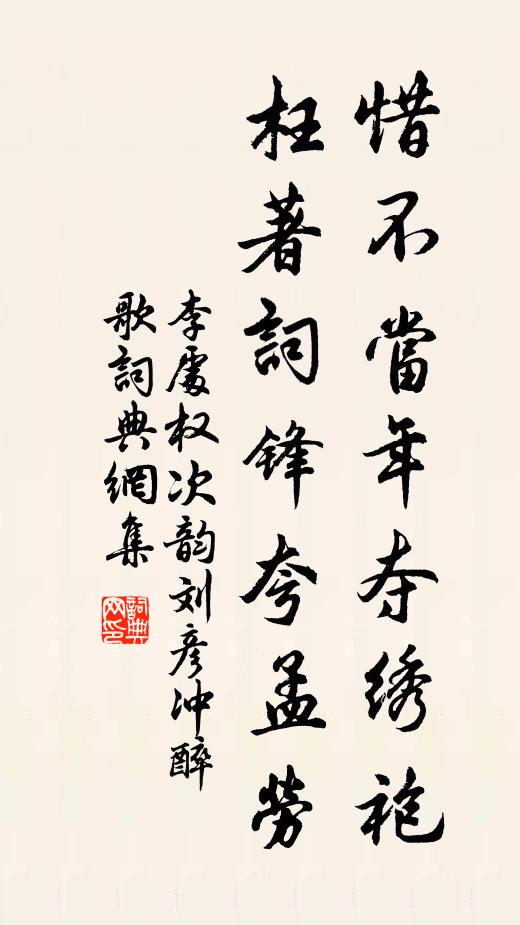 惜不當年夺绣袍
枉著詞锋夸孟勞
李處权次韵刘彦冲醉
歌詞典網集
詞典
网印